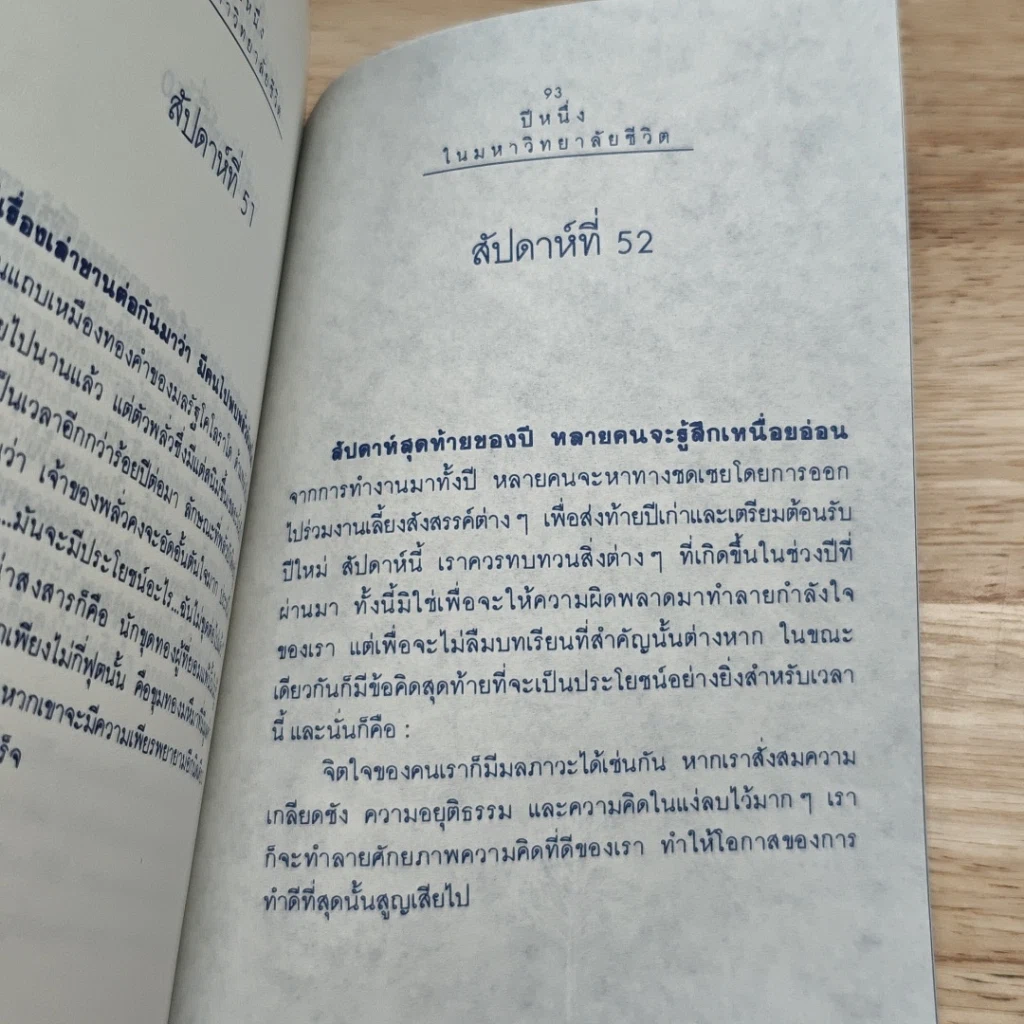 สัปดาห์ที่ 51
เรื่องเล่าขานต่อกันมาว่า
แถบเหมืองทองคำของมลรัฐโคโลราโด
ไปนานแล้ว แต่ตัวพลั่วซึ่งมีแต่สนิม
เป็นเวลาอีกกว่าร้อยปีต่อมา
ว่า เจ้าของพลั่วคงจะอัดอั้นตันใจมาก
...มันจะมีประโยชน์อะไร...ฉันไม่
สงสารก็คือ นักขุดทองผู้ที่ยอมแพ้
เพียงไม่กี่ฟุตนั้น คือขุมทอง
หากเขาจะมีความเพียรพยายาม
93
ปีหนึ่ง
ในมหาวิทยาลัยชีวิต
สัปดาห์ที่ 52
สัปดาห์สุดท้ายของปี หลายคนจะรู้สึกเหนื่อยอ่อน
จากการทำงานมาทั้งปี หลายคนจะหาทางชดเชยโดยการออก
ไปร่วมงานเลี้ยงสังสรรค์ต่าง ๆ เพื่อส่งท้ายปีเก่าและเตรียมต้อนรับ
ปีใหม่ สัปดาห์นี้ เราควรทบทวนสิ่งต่าง ๆ ที่เกิดขึ้นในช่วงปีที่
ผ่านมา ทั้งนี้มิใช่เพื่อจะให้ความผิดพลาดมาทำลายกำลังใจ
ของเรา แต่เพื่อจะไม่ลืมบทเรียนที่สำคัญนั้นต่างหาก ในขณะ
เดียวกันก็มีข้อคิดสุดท้ายที่จะเป็นประโยชน์อย่างยิ่งสำหรับเวลา
นี้ และนั่นก็คือ :
จิตใจของคนเราก็มีมลภาวะได้เช่นกัน หากเราสั่งสมความ
เกลียดชัง ความอยุติธรรม และความคิดในแง่ลบไว้มาก ๆ เรา
ก็จะทำลายศักยภาพความคิดที่ดีของเรา ทำให้โอกาสของการ
ทำดีที่สุดนั้นสูญเสียไป